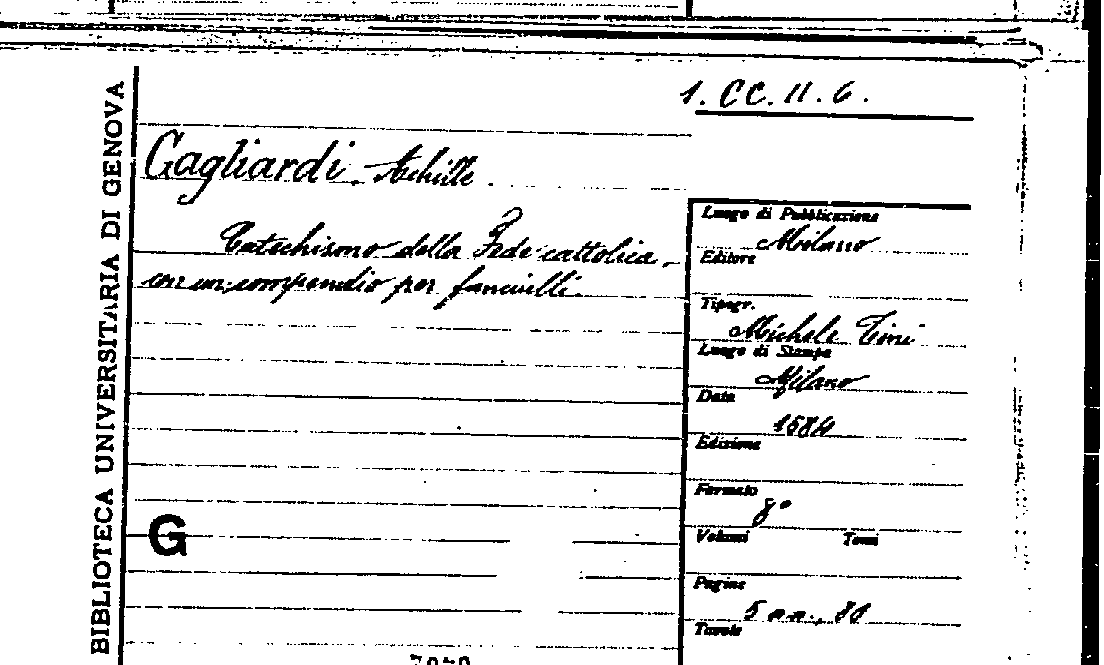 1. CC. II. 6.
BIBLIOTECA UNIVERSITARIA DI GENOVA
Gagliardi Achille.
Catechismo della Fede cattolica,
con un compendio per fanciulli.
G
Luogo di Pubblicazione
Milano
Editore
Tipogr.
Michele Tini
Luogo di Stampa
Milano
Data
1584
Edizione
Formato
8°
Volumi Tomi
Pagine
5 nn., 80
Tavole